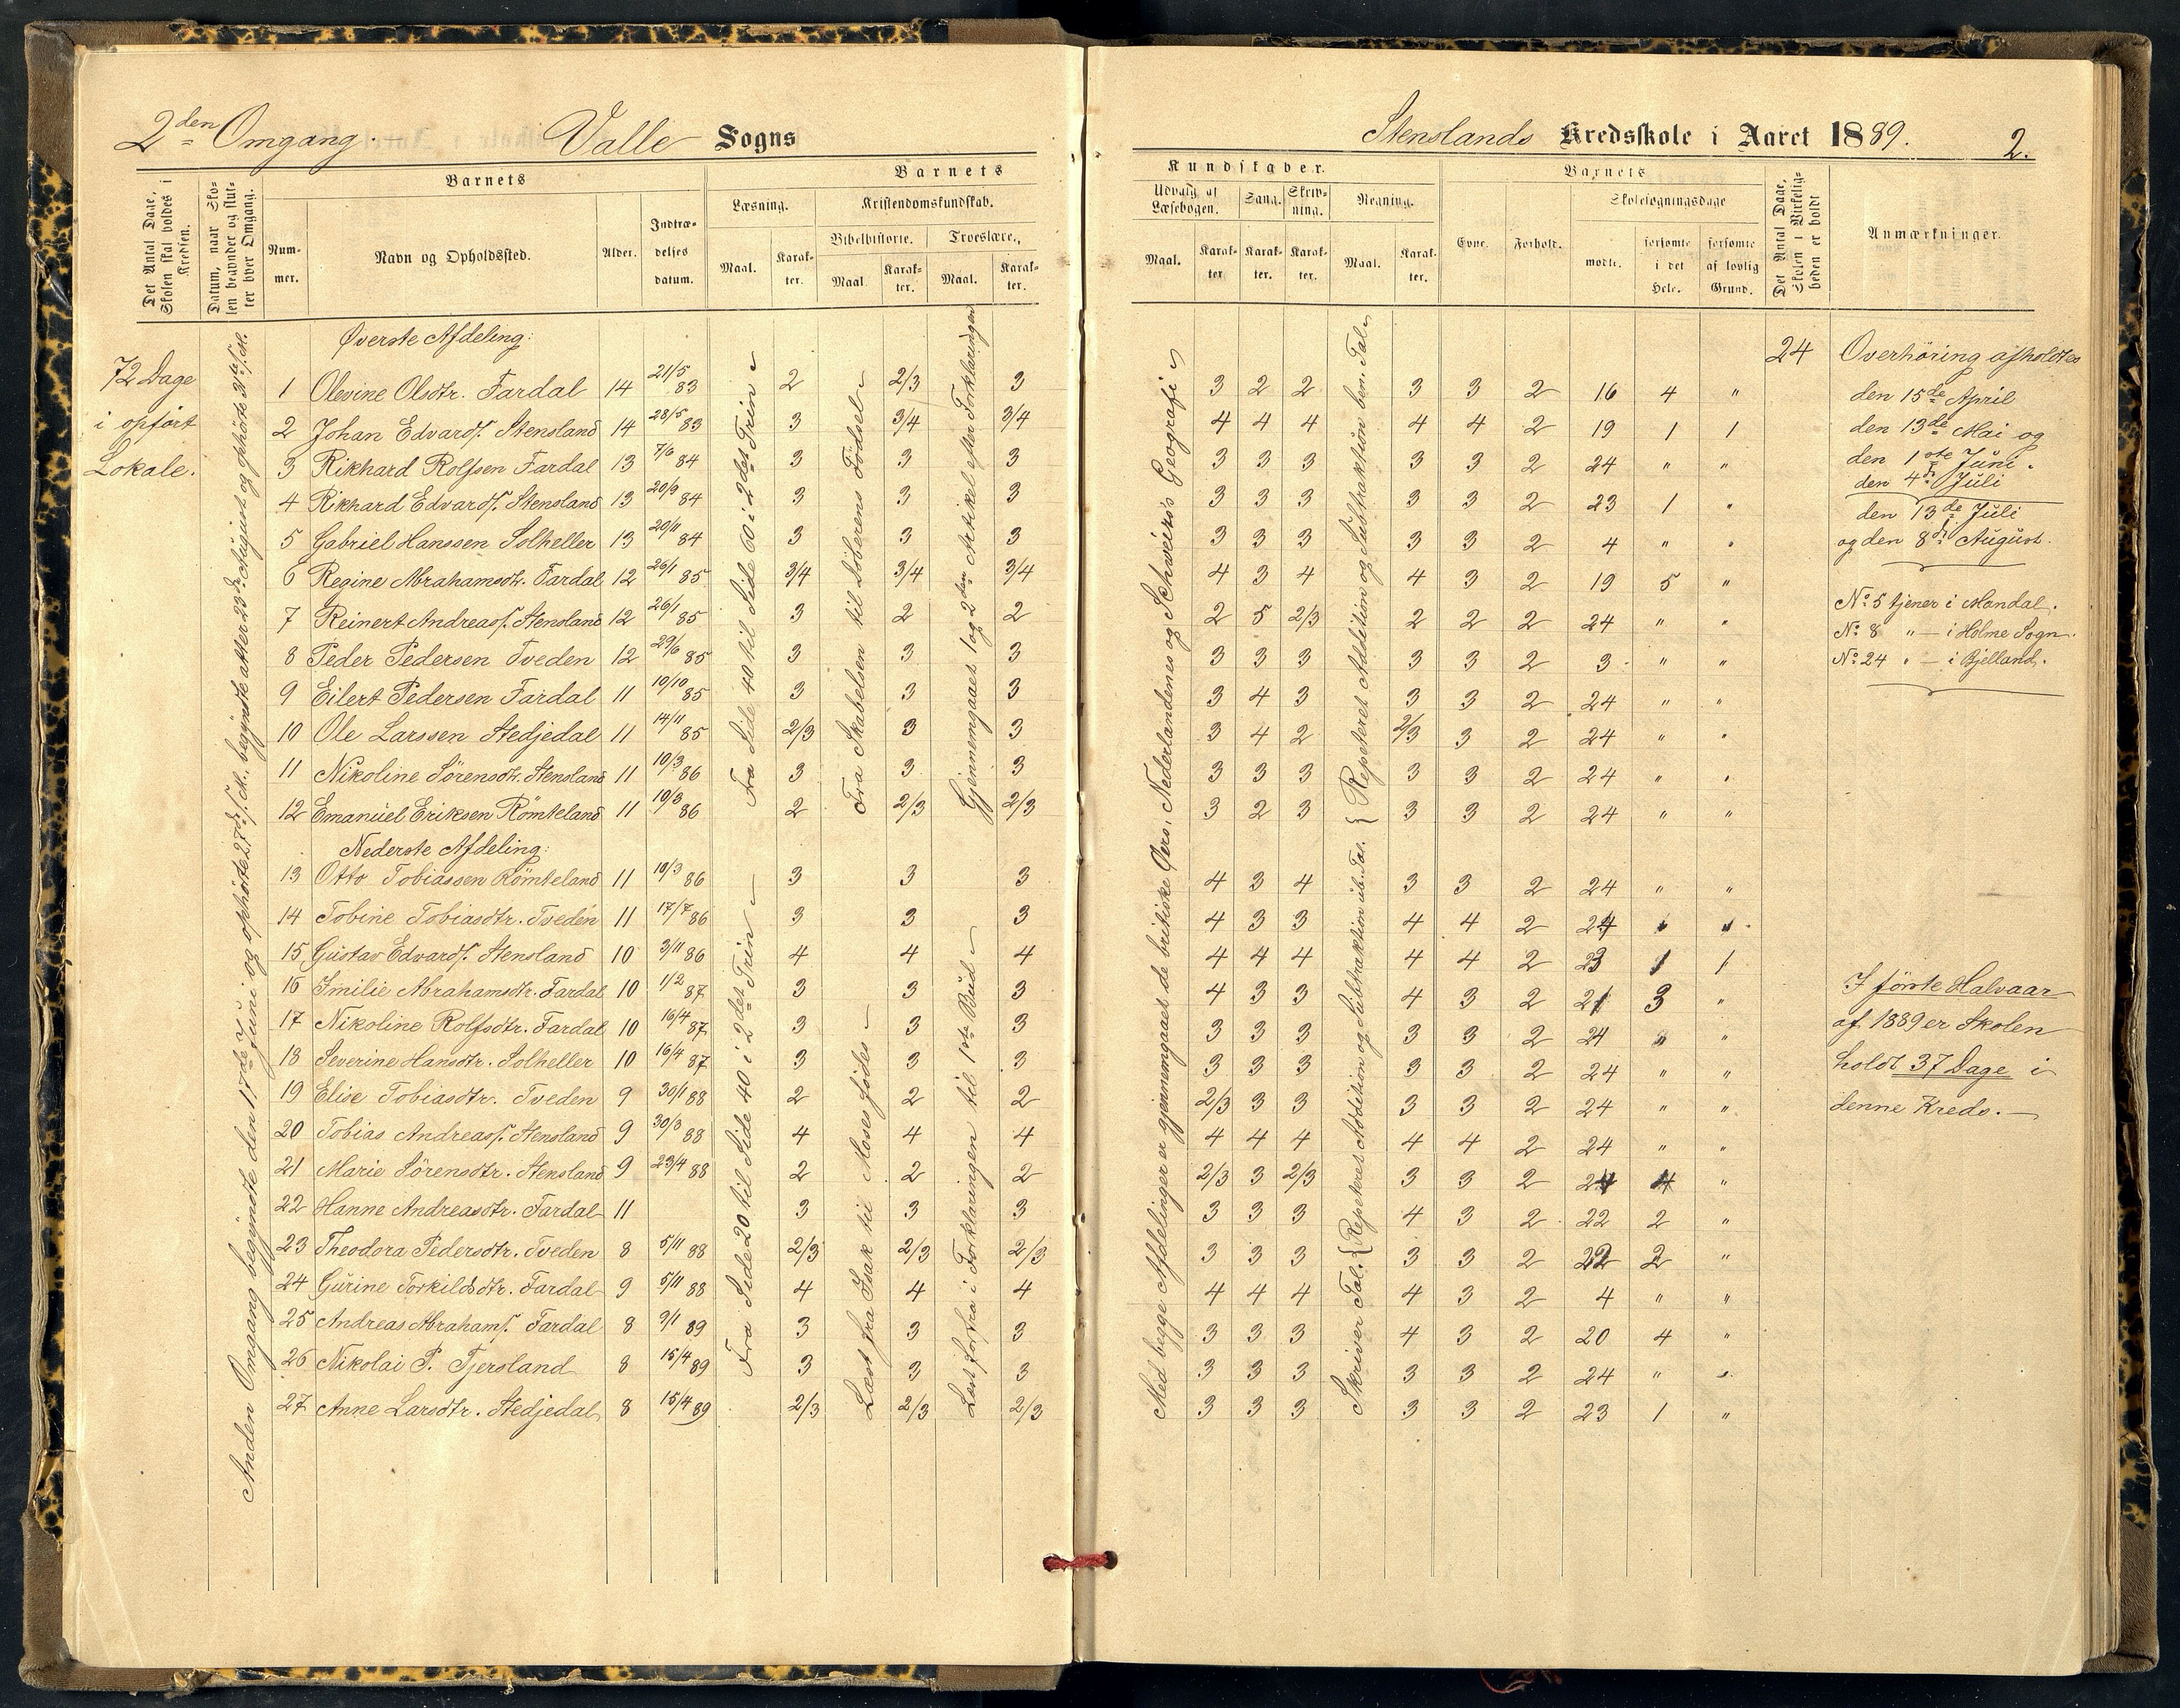 2den Omgang. Valle Sogns
Det Antal Dage, Skolen skal holdes i Kredsen.
Datum, naar Skolen begynder og slutter hver Omgang.
Barnets
Nummer.
Navn og Opholdssted.
Alder.
Indtrædelses datum.
Barnets
Læsning.
Maal.
Karakter.
Kristendomskundskab.
Bibelhistorie.
Maal.
Karakter.
Troeslære.
Maal.
Karakter.
72 Dage
i opført
Lokale.
Anden Omgang begyndte den 17de Juni og ophørte 27de s. M., begyndte atter 23de August og ophørte 31te s. M.
Øverste Afdeling:
1 Olevine Olsdtr. Fardal 14 21/5 83 2 2/3 3
2 Johan Edvards. Stensland 14 28/5 83 3 3/4 3/4
3 Rikhard Rolfsen Fardal 13 7/6 84 3 3 3
4 Rikhard Edvards. Stensland 13 20/9 84 3 3 3
5 Gabriel Hanssen Solheller 13 20/11 84 3 3 3
6 Regine Abrahamsdtr. Fardal 12 26/1 85 3/4 3/4 3/4
7 Reinert Andreass. Stensland 12 26/1 85 3 2 2
8 Peder Pedersen Tveden 12 29/6 85 3 3 3
9 Eilert Pedersen Fardal 11 10/10 85 3 3 3
10 Ole Larssen Stedjedal 11 14/11 85 2/3 3 3
11 Nikoline Sörensdtr. Stensland 11 10/3 86 3 3 3
12 Emanuel Eriksen Römteland 11 10/3 86 2 2/3 2/3
Fra Side 40 til Side 60 i 2det Trin
Fra Skabelsen til Döberens Födsel
Gjennemgaaet 1 og 2den Artikel efter Forklaringen
Nederste Afdeling:
13 Otto Tobiassen Römteland 11 10/3 86 3 3 3
14 Tobine Tobiasdtr. Tveden 11 17/7 86 3 3 3
15 Gustav Edvards. Stensland 10 3/11 86 4 4 4
16 Emilie Abrahamsdtr. Fardal 10 1/2 87 3 3 3
17 Nikoline Rolfsdtr. Fardal 10 16/4 87 3 3 3
18 Severine Hansdtr. Solheller 10 16/4 87 3 3 3
19 Elise Tobiasdtr. Tveden 9 30/1 88 2 2 2
20 Tobias Andreass. Stensland 9 30/3 88 4 4 4
21 Marie Sörensdtr. Stensland 9 23/4 88 2 2 2
22 Hanne Andreasdtr. Fardal 11 3 3 3
23 Theodora Pedersdtr. Tveden 8 5/11 88 2/3 2/3 2/3
24 Gurine Torkildsdtr. Fardal 9 5/11 88 4 4 4
25 Andreas Abrahams. Fardal 8 9/1 89 3 3 3
26 Nikolai P. Tjersland 8 15/4 89 3 3 3
27 Anne Larsdtr. Stedjedal 8 15/4 89 2/3 2/3 2/3
Fra Side 20 til Side 40 i 2det Trin
Læst fra Isak til Moses födes
Læst forfra i Forklaringen til 1ste Bud
Stenslands Kredsskole i Aaret 1889. 2.
Kundskaber.
Udvalg af Læsebogen.
Maal.
Karakter
Sang.
Karakter.
Skrivning.
Karakter.
Regning.
Maal.
Karakter.
Barnets
Evne.
Forhold.
Skolesøgningsdage
mødte.
forsømte i det Hele.
forsømte af lovlig Grund.
Det Antal Dage, Skolen i Virkeligheden er holdt
Anmærkninger.
Med begge Afdelinger er gjennemgaaet de britiske Öers, Nederlandenes og Schweizs's Geografi
Repeteret Addition og Subtraktion ben. Tal
3 2 2 3 3 2 16 4 "
4 4 4 4 4 2 19 1 1
3 3 3 3 3 2 24 " "
3 3 3 3 3 2 23 1 "
3 3 3 3 3 2 4 " "
4 3 4 4 3 2 19 5 "
2 5 2/3 2 2 2 24 " "
3 3 3 3 3 2 3 " "
3 4 3 3 3 2 24 " "
3 4 2 2/3 3 2 24 " "
3 3 3 3 3 2 24 " "
3 2 3 3 3 2 24 " "
Skriver Tal. Repeteret Addition og Subtraktion ub. Tal.
4 3 4 3 3 2 24 " "
4 3 3 4 4 2 24
4 4 4 4 4 2 23 1 1
4 3 3 4 3 2 21 3 "
3 3 3 3 3 2 24 "
3 3 3 3 3 2 24 " "
2/3 3 3 3 3 2 24 " "
4 4 4 4 4 2 24 " "
2/3 3 2/3 3 3 2 "
3 3 3 4 3 2 22 2 "
3 3 3 3 3 2 22 2 "
4 4 4 4 3 2 4 " "
3 3 3 4 3 2 20 4 "
3 3 3 3 3 2 24 " "
3 3 3 3 3 2 23 1 "
24
Overhöring afholdtes
den 15de April
den 13de Mai og
den 1ste Juni.
den 4de Juli
den 13de Juli
og den 8de August.
No 5 tjener i Mandal.
No 8 " — i Holme Sogn.
No 24 " — i Bjelland.
I förste Halvaar
af 1889 er Skolen
holdt 37 Dage i
denne Kreds.